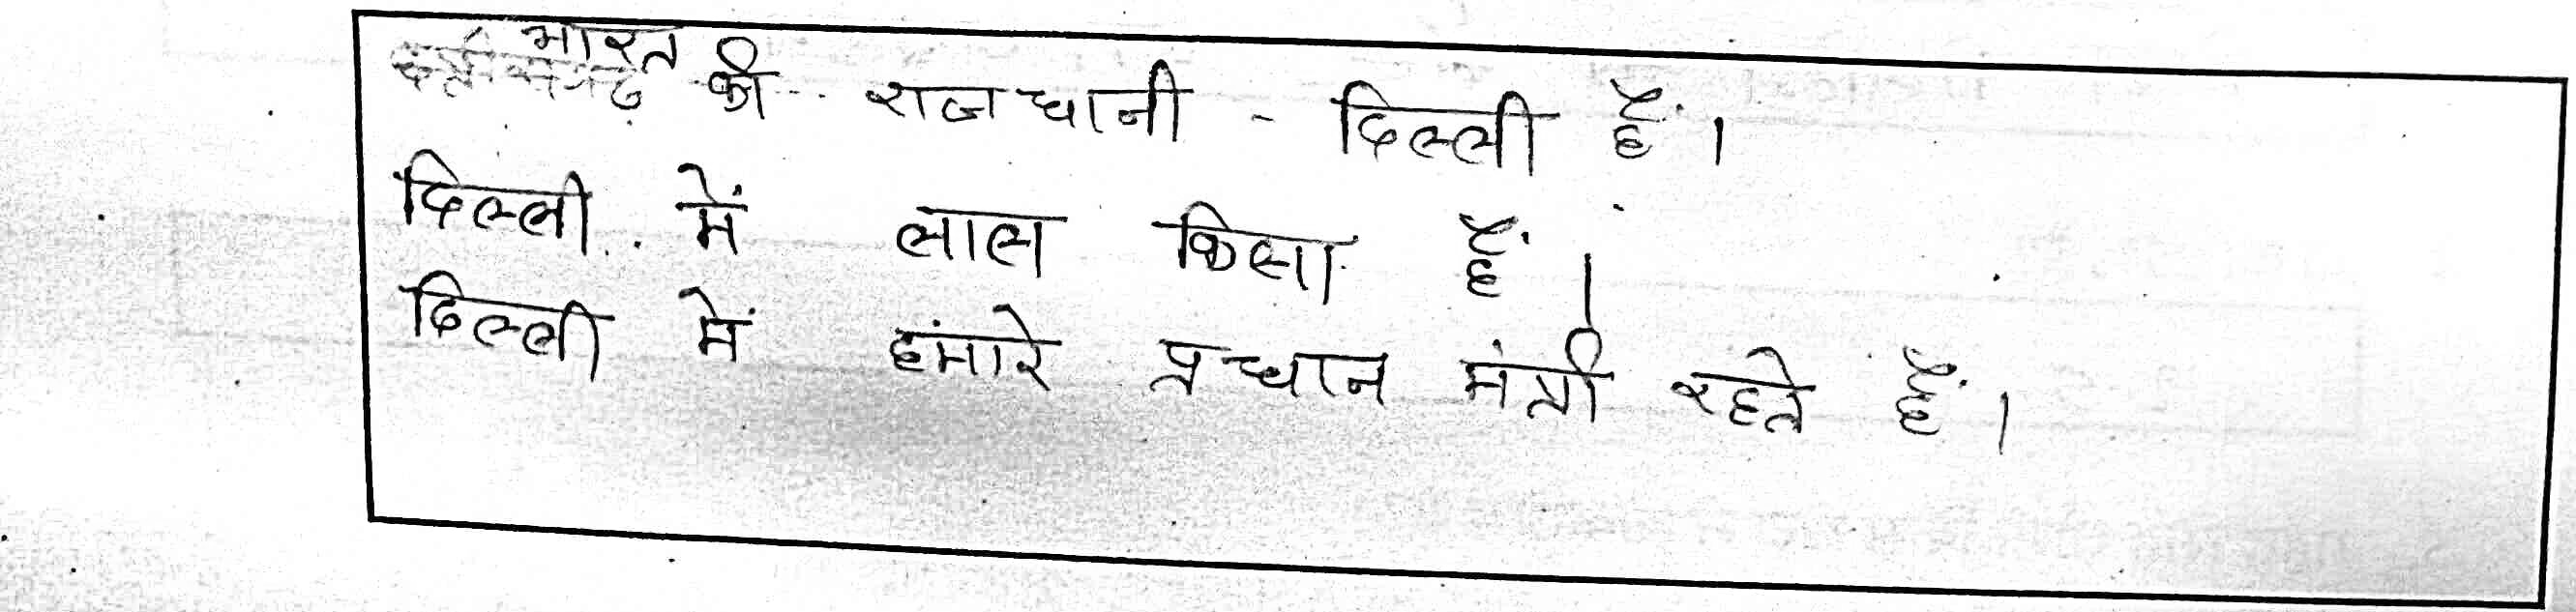 भारत की राजधानी - दिल्ली हैं।
दिल्ली में लाल किला हैं।
दिल्ली में हंमारे प्रधान मंत्री रहते हैं।